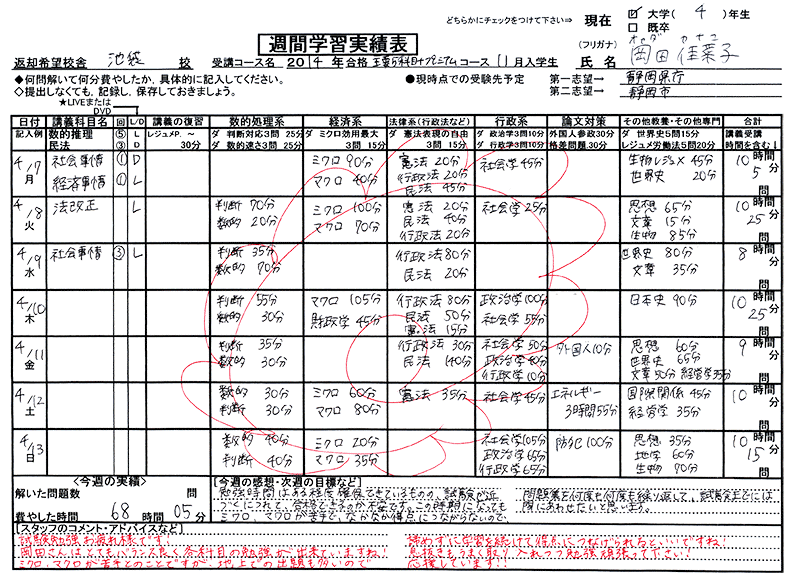 どちらかにチェックをつけて下さい⇒ 現在 ☑ 大学( 4 )年生
□ 既卒
週間学習実績表
(フリガナ) オカダ カナコ
氏名 岡田 佳菜子
返却希望校舎 池袋 校 受講コース名 2014年合格 コース 11月入学生
●何問解いて何分費やしたか、具体的に記入してください。 ●現時点での受験先予定 第一志望→ 静岡県庁
◇提出しなくても、記録し、保存しておきましょう。 第二志望→ 静岡市
★LIVEまたはDVD
日付 講義科目名 回 L/D 講義の復習 数的処理系 経済系 法律系(行政法など) 行政系 論文対策 その他教養・その他専門 合計
記入例 数的推理 ⑤ L レジュメP. ~ ダ 判断対応3問 25分 ダ ミクロ効用最大 ダ 憲法表現の自由 ダ 政治学3問10分 外国人参政30分 ダ 世界史5問15分 講義受講
民法 ③ D 30分 ダ 数的速さ3問 25分 3問 15分 3問 15分 ダ 行政学3問10分 格差問題.30分 レジュメ労働法5問20分 時間を含む!
4/7 社会事情 ① D ミクロ 90分 憲法 20分 社会学 45分 生物レジュメ 45分 10時間
月 経済事情 ① L マクロ 40分 行政法 20分 世界史 20分 5分
民法 45分 問
4/8 法改正 L 判断 70分 ミクロ 100分 憲法 20分 社会学 25分 思想 65分 10時間
火 数的 20分 マクロ 70分 民法 40分 文章 15分 25分
行政法 20分 生物 85分 問
4/9 社会事情 ③ L 判断 35分 行政法 80分 世界史 80分 8時間
水 数的 70分 民法 20分 文章 35分 分
問
4/10 判断 55分 マクロ 105分 行政法 80分 政治学 100分 日本史 90分 10時間
木 数的 30分 財政学 45分 民法 50分 社会学 55分 25分
憲法 15分 問
4/11 判断 35分 行政法 30分 社会学 50分 外国人 10分 思想 60分 9時間
金 数的 30分 民法 140分 政治学 40分 世界史 65分 分
行政学 10分 文章 50分 経営学 35分 問
4/12 数的 30分 ミクロ 60分 憲法 35分 社会学 45分 エネルギー 国際関係 45分 10時間
土 判断 30分 マクロ 80分 3時間55分 経営学 35分 分
問
4/13 数的 40分 ミクロ 20分 社会学 105分 防犯 100分 思想 35分 10時間
日 判断 40分 マクロ 35分 政治学 65分 地学 60分 15分
行政学 65分 生物 90分 問
<今週の実績> [今週の感想・次週の目標など]
解いた問題数 問 勉強時間はある程度確保できているものの、試験が近
づくにつれて、合格できるのか不安です。この時期になっても
ミクロ、マクロが苦手で、なかなか得点につながらないので、
問題集を何度も何度も繰り返して、試験までには
間にあわせたいと思います。
費やした時間 68 時間 05 分
[スタッフのコメント・アドバイスなど]
試験勉強お疲れ様です!
岡田さんはとてもバランス良く各科目の勉強が出来ていますね!
ミクロ・マクロが苦手とのことですが、地上での出題も多いので
諦めずに学習を続けて得点につなげられるといいですね!
息抜きもうまく取り入れつつ勉強頑張って下さい!
応援しています!!